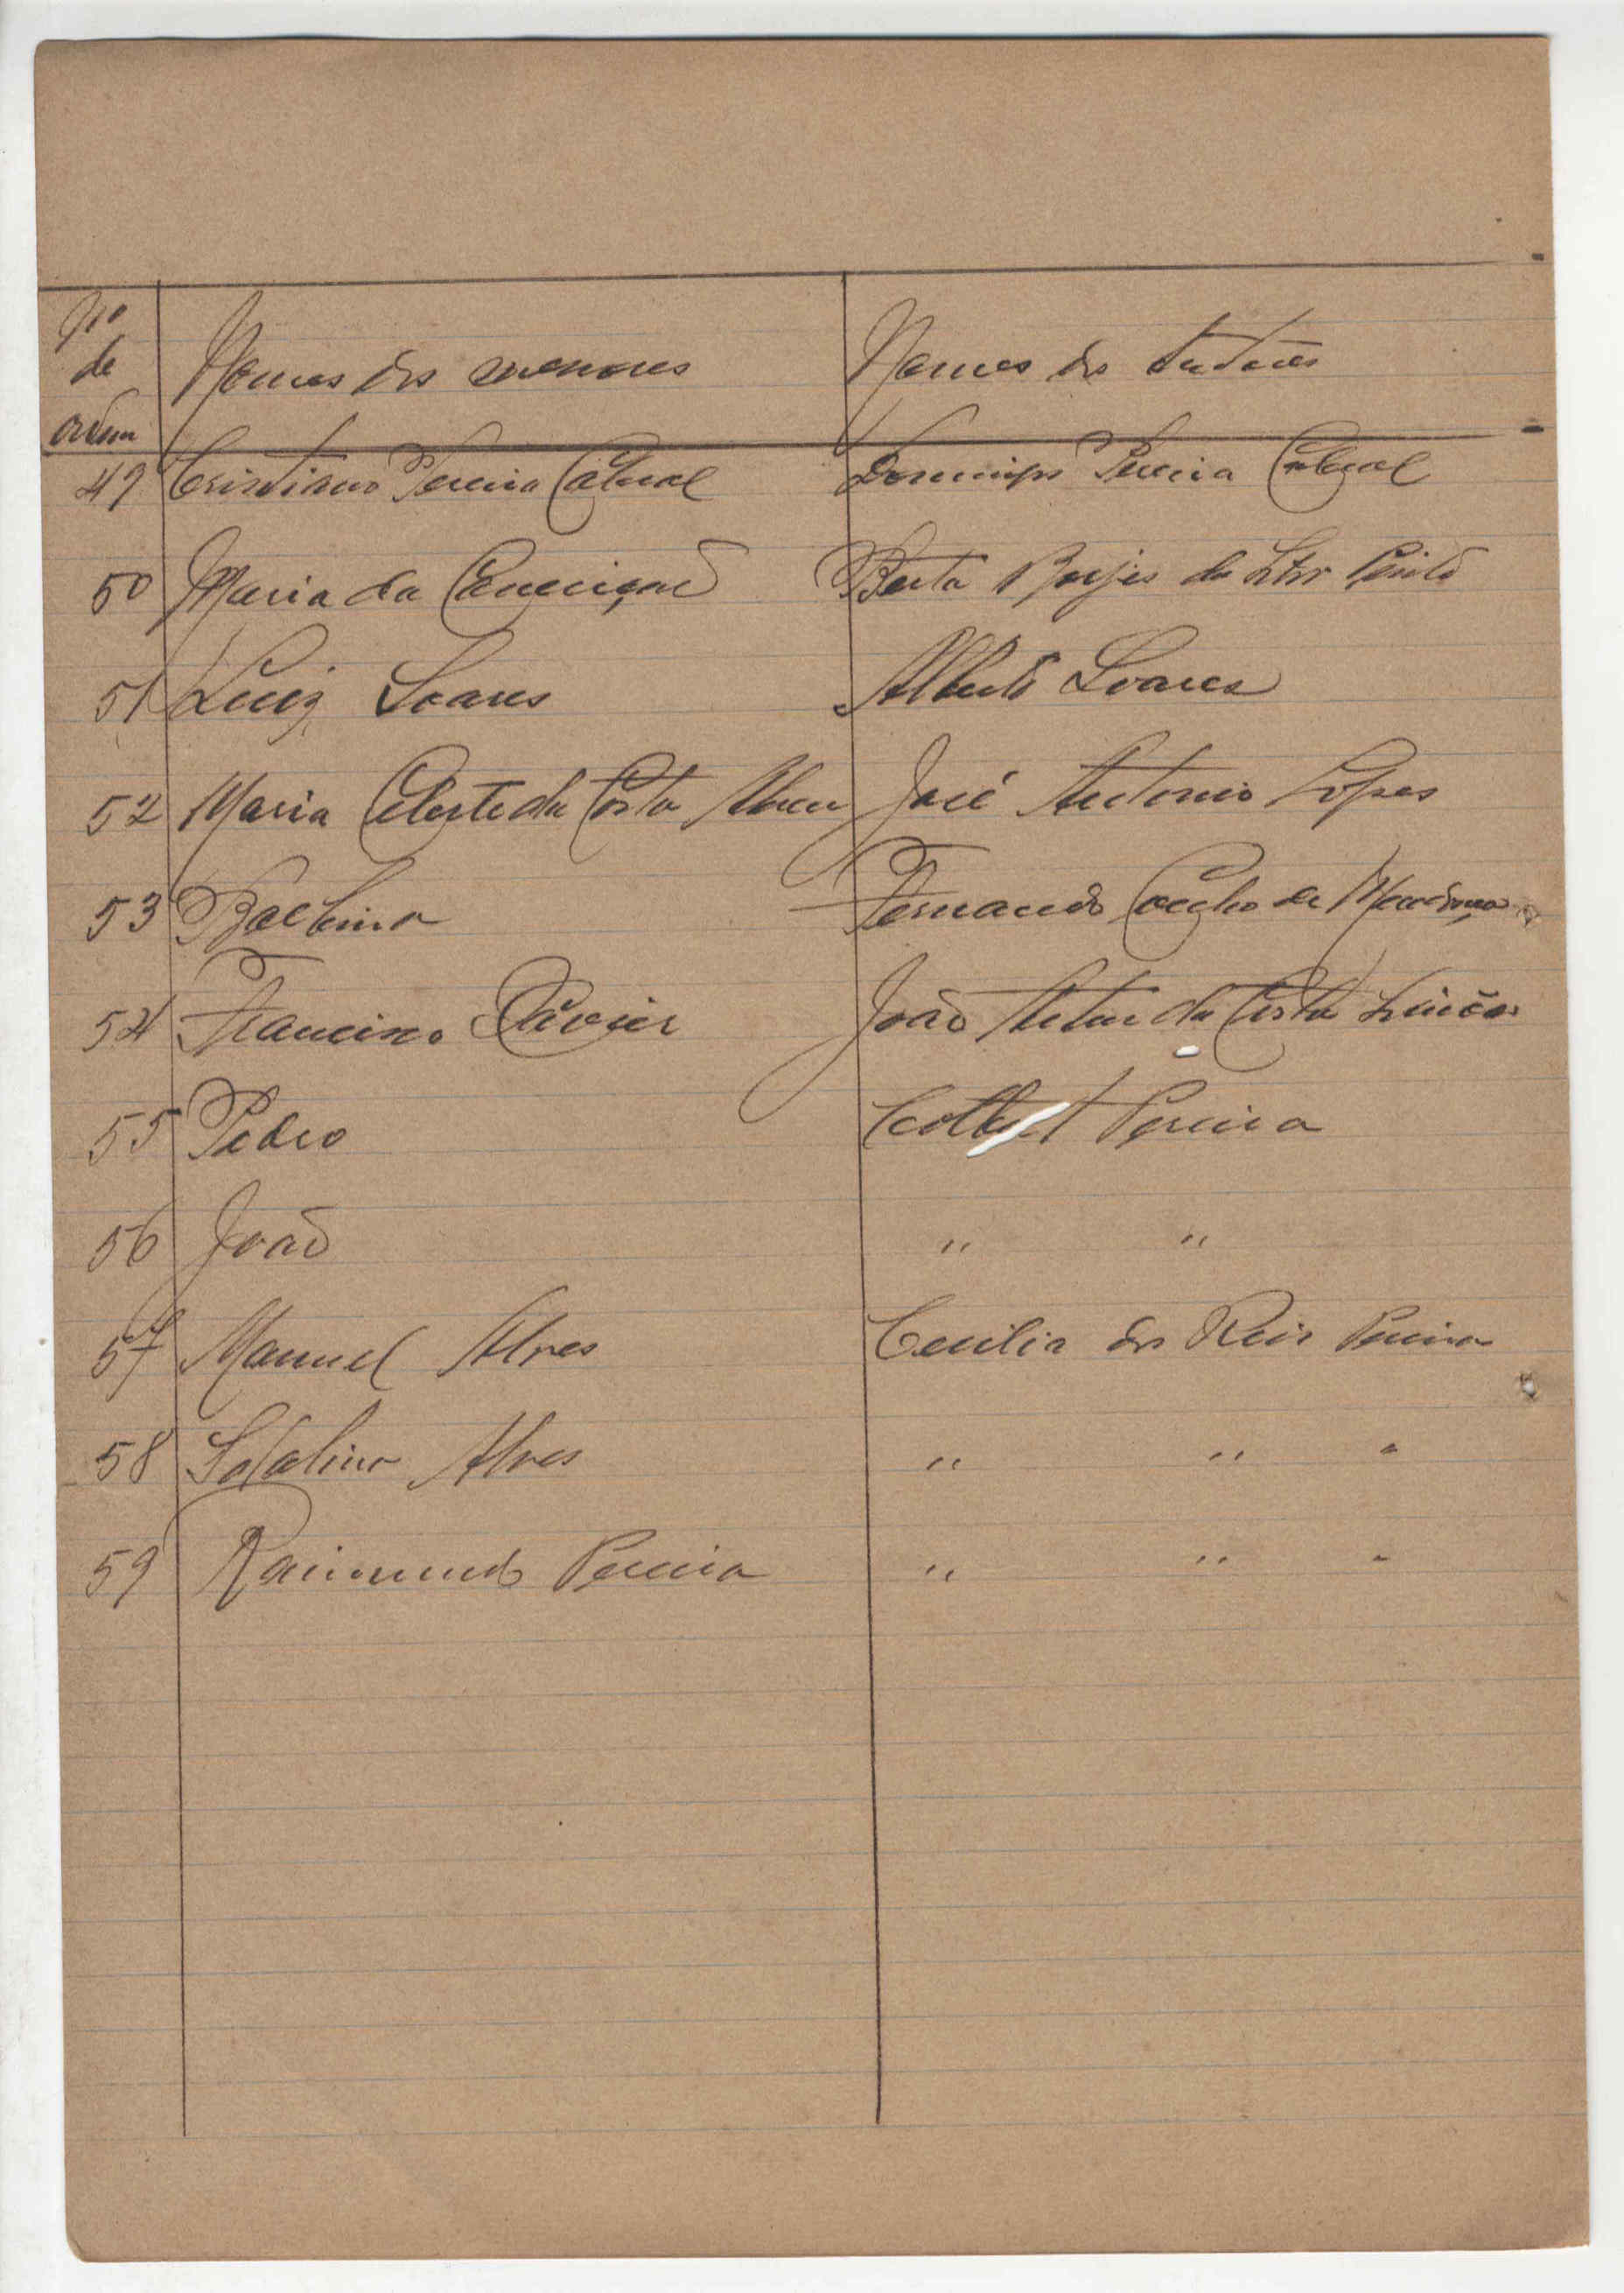 Nº
de
ordem
Nomes dos menores
Nomes dos tutores
49 Cristiano Pereira Cabral Domingos Pereira Cabral
50 Maria da Conceição Berta Borjes da Pinto
51 Luiz Soares Alberto Soares
52 Maria Celeste da Costa Abreu José Antonio Lopes
53 Balbina Fernando Coelho de Mendonça
54 Francisco Xavier João Artur da Costa
55 Pedro Colbert Pereira
56 João " "
57 Manuel Alves Cecilia dos Reis Pereira
58 Alves " " "
59 Raimundo Pereira " " "